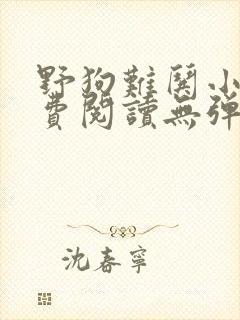 野狗難関小
費閱讀無彈
沈春寧